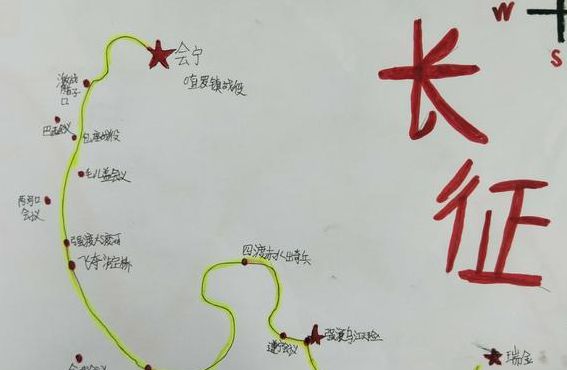 W
S
长征
会宁
直罗镇战役
激战
腊子
口
巴西会议
包座战役
毛儿盖会议
两河口
会议
强渡大渡河
飞夺泸定桥
四渡赤水出奇兵
遵义会议
强渡乌江天险
瑞金